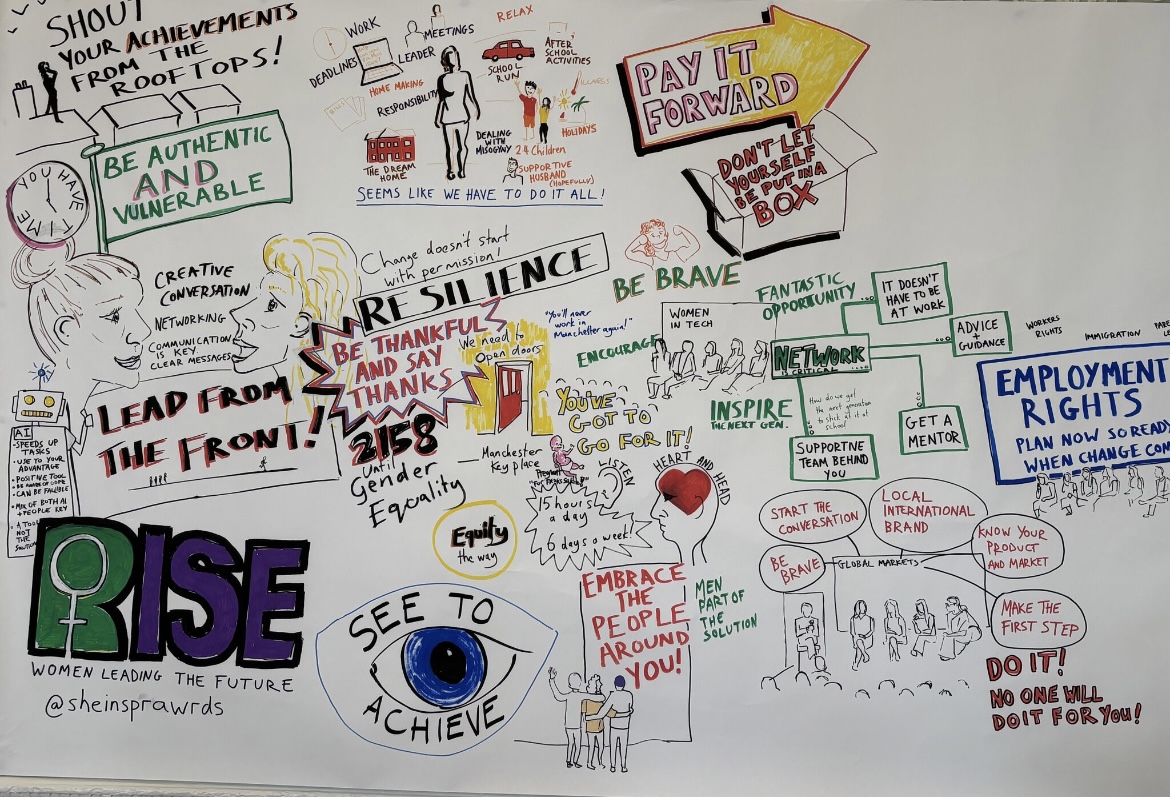 SHOUT
YOUR ACHIEVEMENTS
FROM THE
ROOFTOPS!
BE AUTHENTIC
AND
VULNERABLE
YOU HAVE TIME
WORK
DEADLINES
MEETINGS
LEADER
HOME MAKING
RESPONSIBILITY
RELAX
SCHOOL
RUN
AFTER
SCHOOL
ACTIVITIES
HOLIDAYS
DEALING
WITH
MISOGYNY
2.4 Children
SUPPORTIVE
HUSBAND
(HOPEFULLY)
THE DREAM
HOME
SEEMS LIKE WE HAVE TO DO IT ALL!
PAY IT
FORWARD
DON'T LET
YOURSELF
BE PUT IN A
BOX
CREATIVE
CONVERSATION
NETWORKING
COMMUNICATION
IS KEY
CLEAR MESSAGES
Change doesn't start
with permission!
RESILIENCE
BE THANKFUL
AND SAY
THANKS
We need to
Open doors
"You'll never
work in
Manchester again!"
BE BRAVE
ENCOURAGE
WOMEN
IN TECH
FANTASTIC
OPPORTUNITY
IT DOESN'T
HAVE TO BE
AT WORK
NETWORK
IS CRITICAL
ADVICE
+
GUIDANCE
GET A
MENTOR
SUPPORTIVE
TEAM BEHIND
YOU
How do we get
the next generation
to stick at it at
school
INSPIRE
THE NEXT GEN.
WORKERS
RIGHTS
IMMIGRATION
EMPLOYMENT
RIGHTS
PLAN NOW SO READY
WHEN CHANGE COM
LEAD FROM
THE FRONT!
AI
•SPEEDS UP
TASKS
•USE TO YOUR
ADVANTAGE
•POSITIVE TOOL
•BE AWARE OF GDPR
•CAN BE FALLIBLE
•MIX OF BOTH AI
+ PEOPLE KEY
•A TOOL
NOT
THE
SOLUTION
2158
Until
Gender
Equality
Manchester
Key place
YOU'VE
GOT TO
GO FOR IT!
Pregnant
LISTEN
15 hours
a day
6 days a week!
HEART AND HEAD
Equity
the way
START THE
CONVERSATION
LOCAL
INTERNATIONAL
BRAND
KNOW YOUR
PRODUCT
AND MARKET
BE
BRAVE
GLOBAL MARKETS
MAKE THE
FIRST STEP
DO IT!
NO ONE WILL
DO IT FOR YOU!
RISE
WOMEN LEADING THE FUTURE
@sheinsprawrds
SEE TO
ACHIEVE
EMBRACE
THE
PEOPLE
AROUND
YOU!
MEN
PART OF
THE
SOLUTION